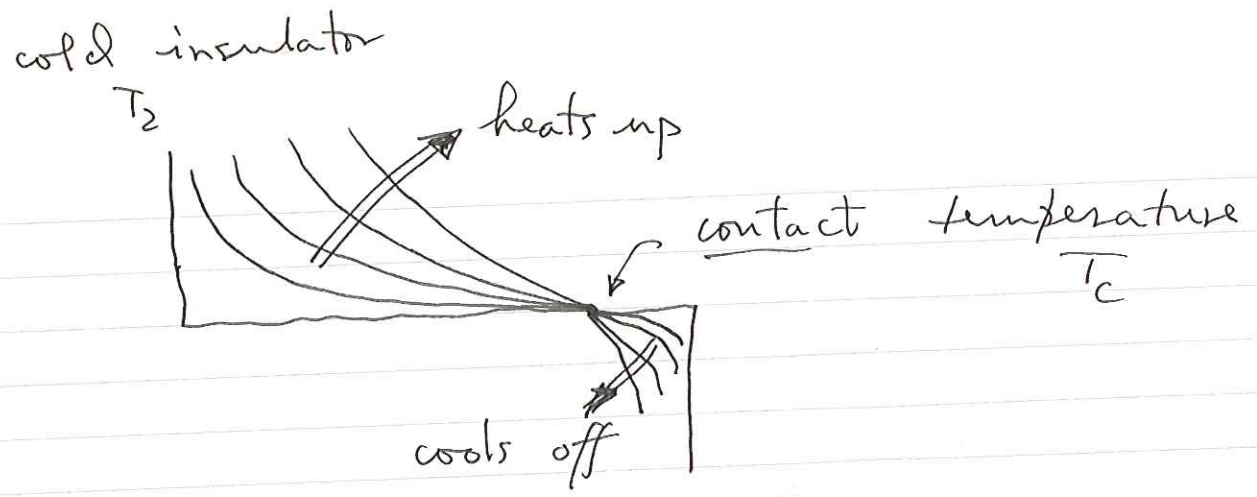 cold insulator
T₂
heats up
contact temperature
T_C
cools off